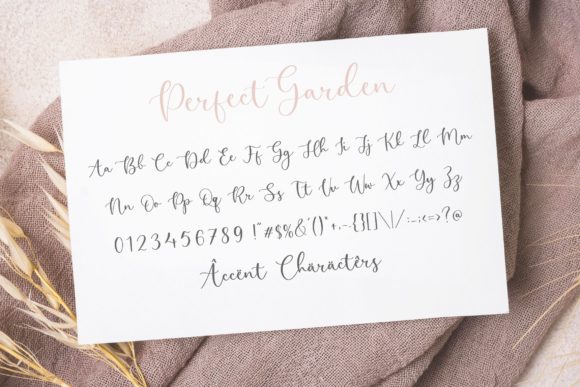 Perfect Garden
Aa Bb Cc Dd Ee Ff Gg Hh Ii Jj Kk Ll Mm
Nn Oo Pp Qq Rr Ss Tt Uu Vv Ww Xx Yy Zz
0123456789 !"#$%&'()*+,-.{}[]\|/:_;<=>?@
Âccënt Chäräctêrs